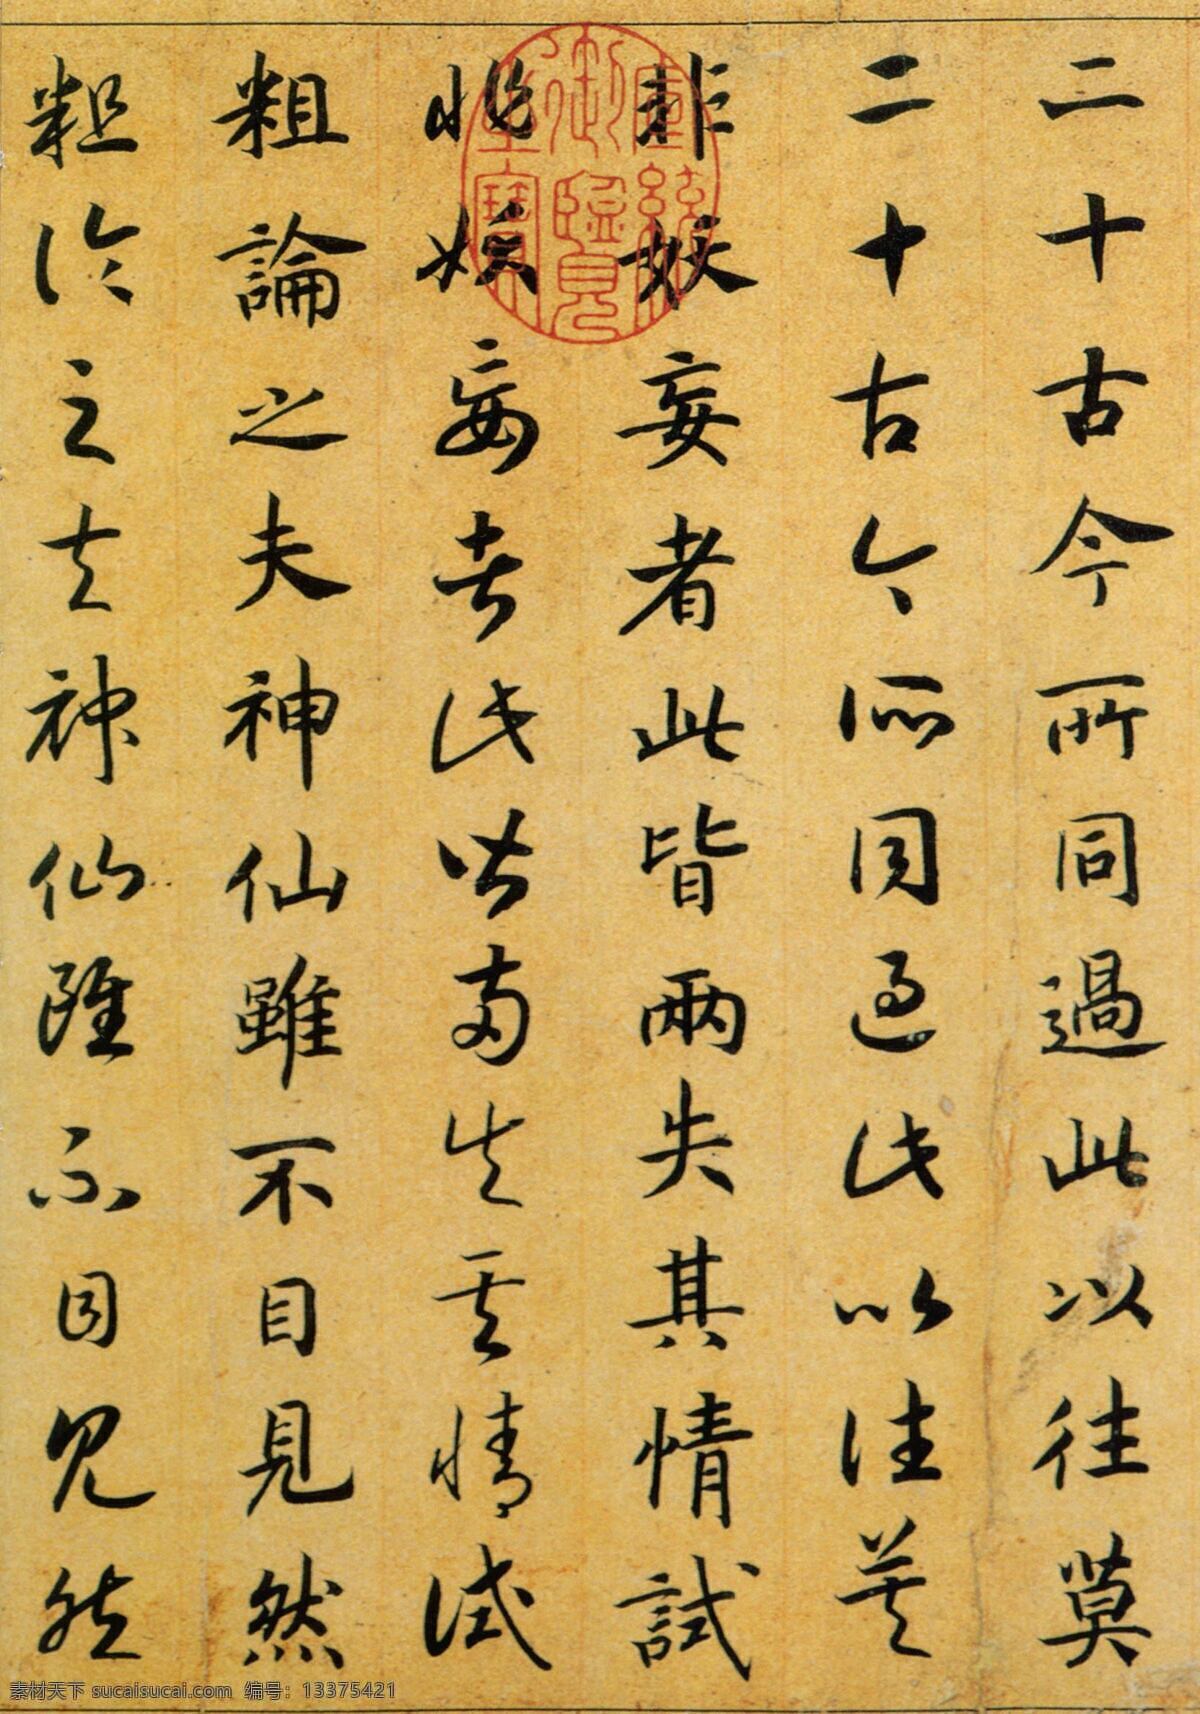 二十古今所同過此以往莫
二十古今所同過此以往莫
非妖妄者此皆兩失其情試
非妖妄者此皆兩失其情試
粗論之夫神仙雖不目見然
粗論之夫神仙雖不目見然
宣統
御覽
之寶
素材天下 sucaisucai.com 编号：13375421